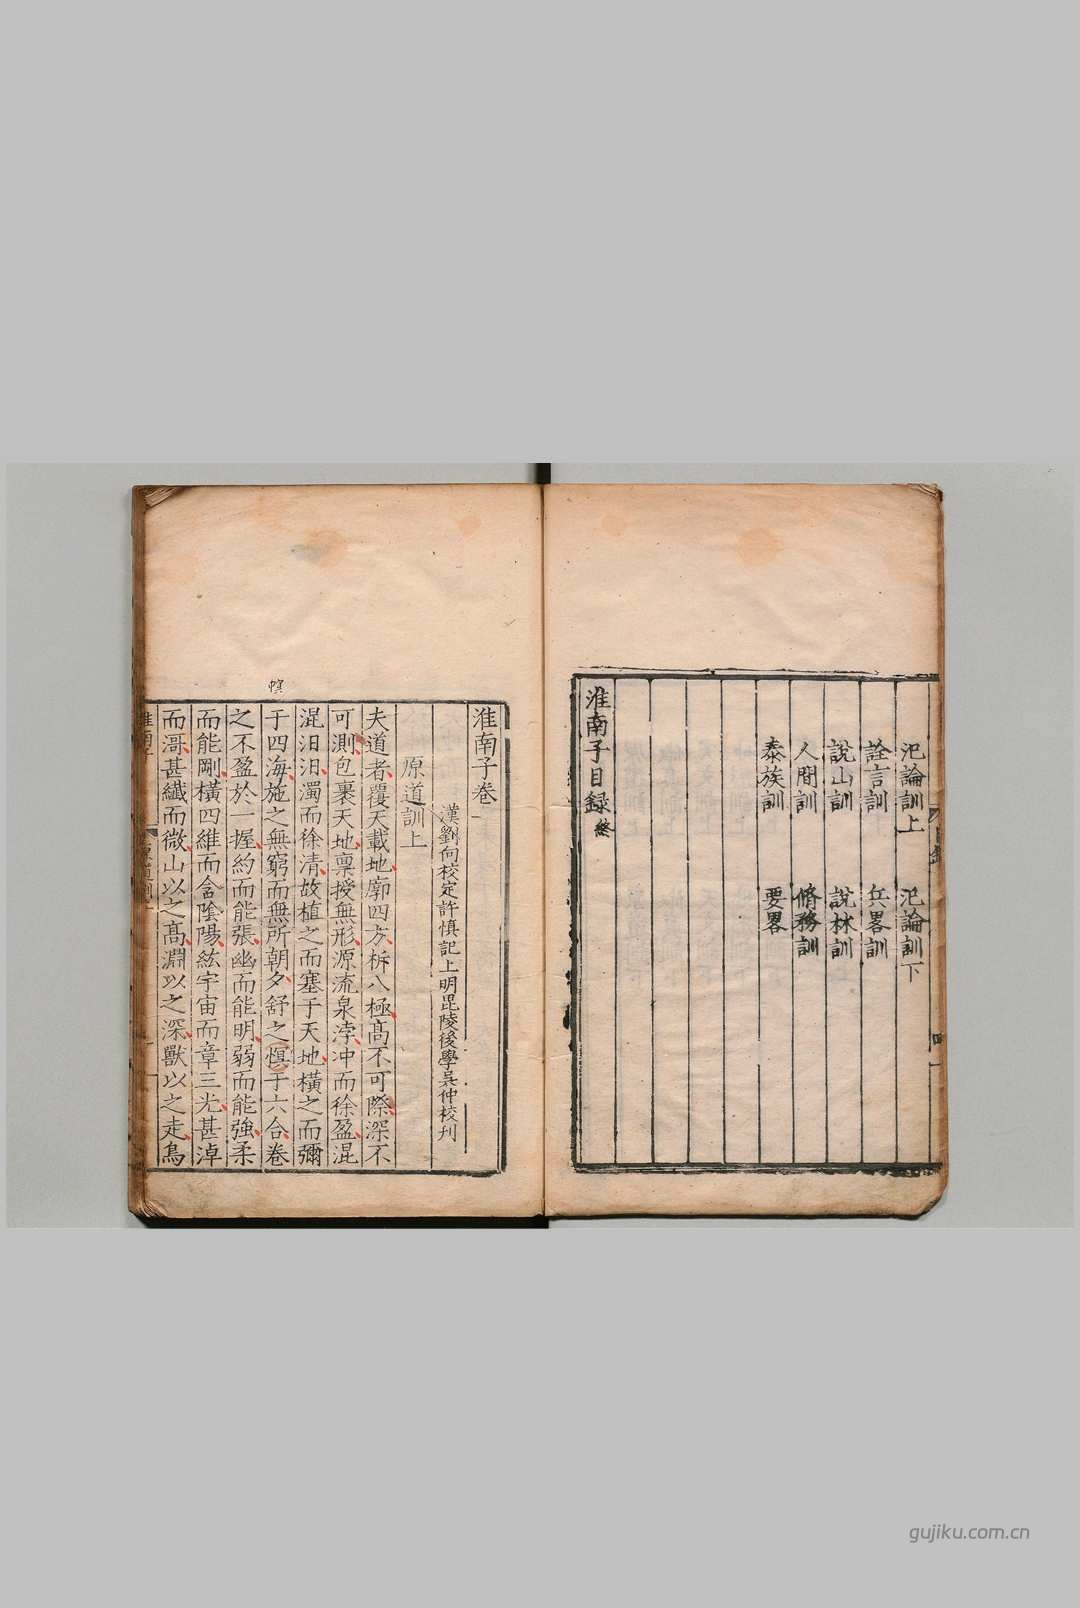 氾論訓上　氾論訓下
詮言訓　兵畧訓
說山訓　說林訓
人間訓　脩務訓
泰族訓　要畧
淮南子目録終
淮南子卷一
漢劉向校定許慎記上明毘陵後學吴仲校刋
原道訓上
夫道者覆天載地廓四方柝八極髙不可際深不
可測包裹天地禀授無形源流泉浡冲而徐盈混
混汩汩濁而徐清故植之而塞于天地橫之而彌
于四海施之無窮而無所朝夕舒之幎于六合卷
幎
之不盈於一握約而能張幽而能明弱而能強柔
而能剛橫四維而含陰陽紘宇宙而章三光甚淖
而滒甚纖而微山以之髙淵以之深獸以之走鳥
gujiku.com.cn